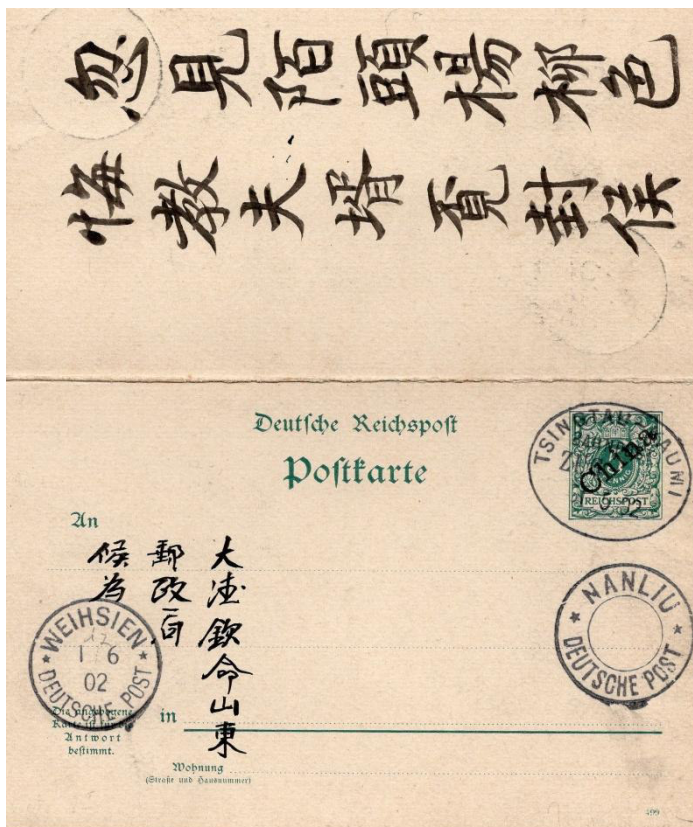 忽見陌頭楊柳色
悔教夫壻覓封侯
Deutsche Reichspost
Postkarte
China
REICHSPOST
TSINGTAU-KAUMI
02
An
大德欽命山東
郵政局
候為
NANLIU
DEUTSCHE POST
WEIHSIEN
1 6
02
DEUTSCHE POST
Die angebogene
Karte ist für die
Antwort
bestimmt.
in
Wohnung
(Straße und Hausnummer)
499